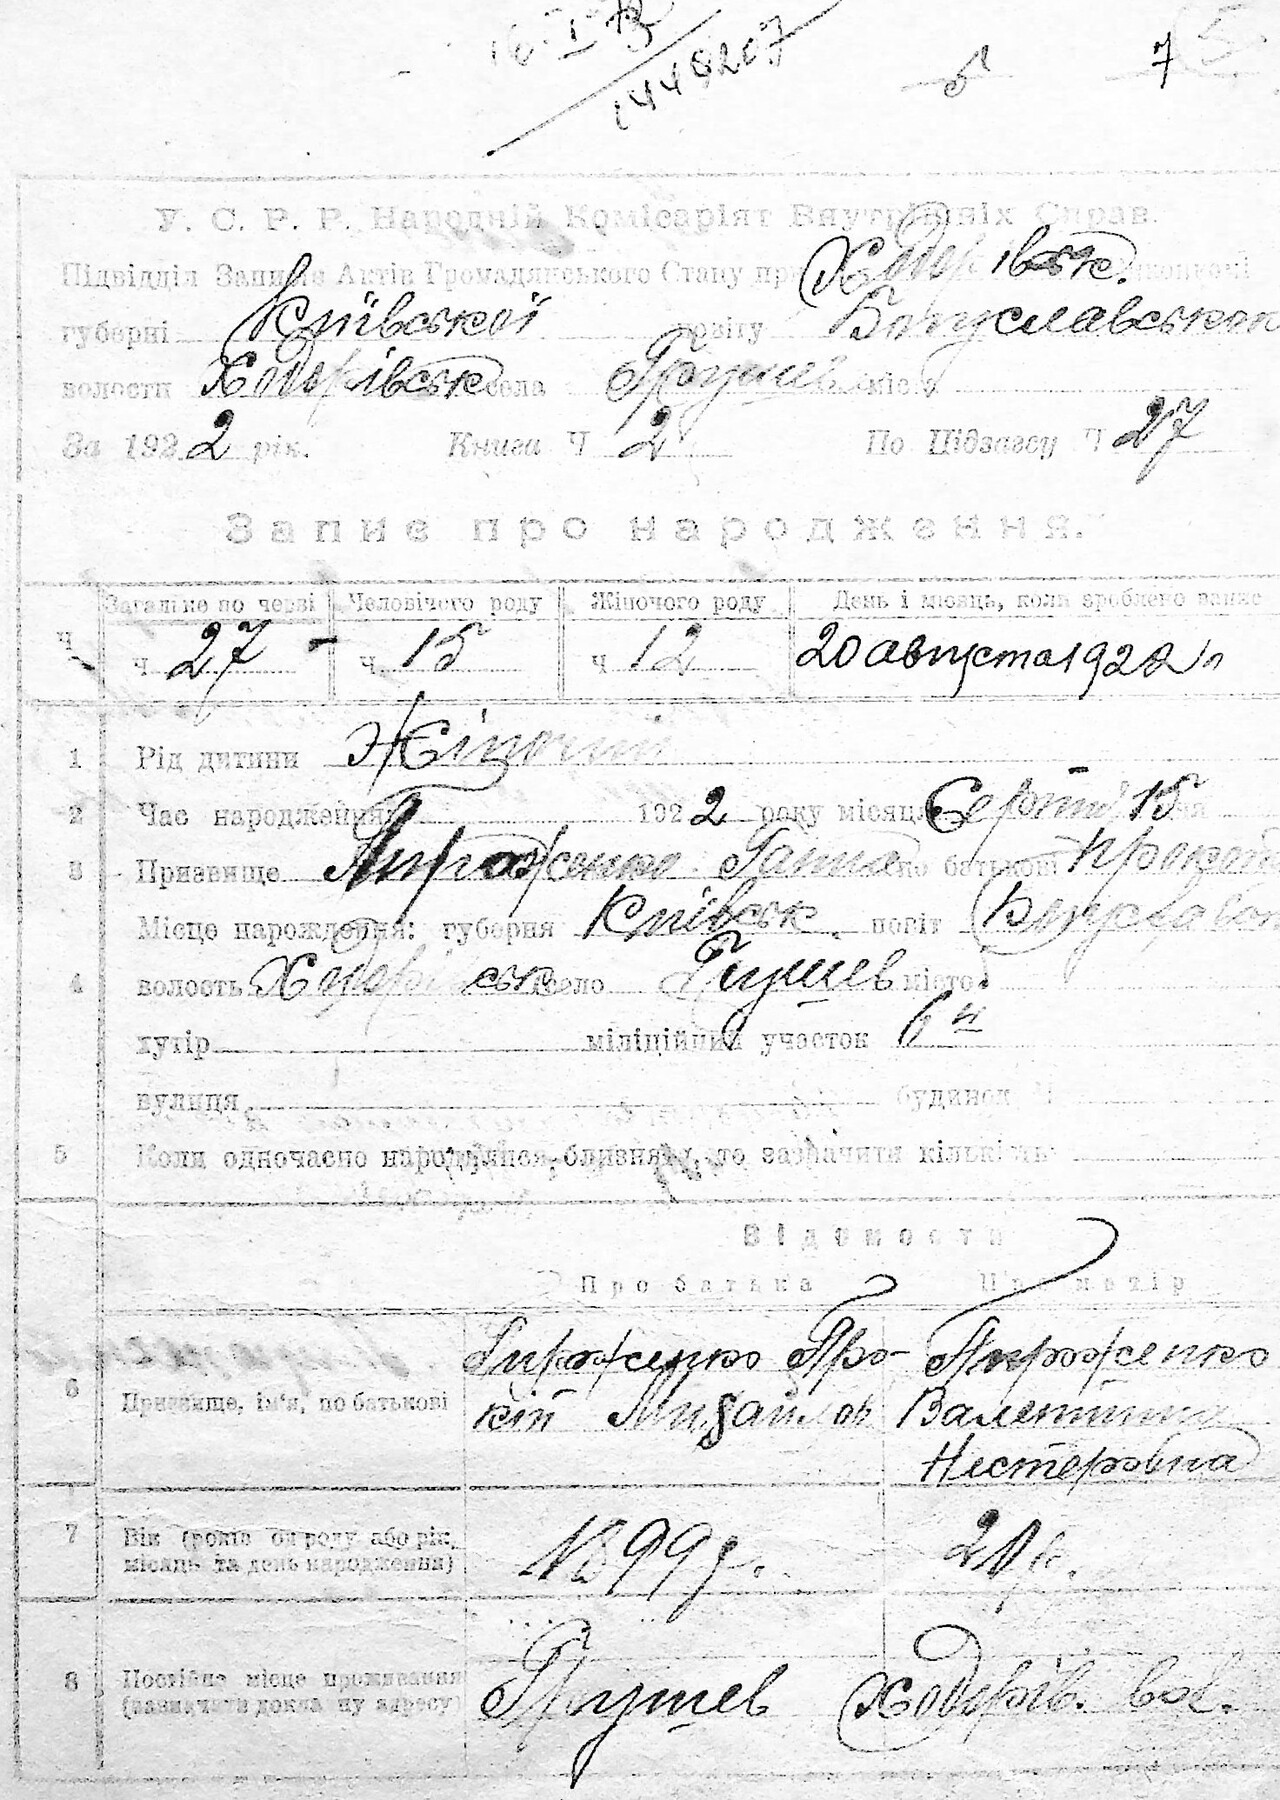 16-I-73
1448207
7 5
У. С. Р. Р. Народній Комісаріят Внутрішніх Справ.
Підвідділ Записів Актів Громадянського Стану при Ходорівськ. виконкомі
губерні Київської повіту Богуславського
волости Ходорівськ села Грушев місто
За 1922 рік. Книга Ч 2 По Підзагсу Ч 27
Запис про народження.
Загальне по черзі Человічого роду Жіночого роду День і місяць, коли зроблено запис
Ч ч 27 - ч 15 ч 12 20 августа 1922 г
1 Рід дитини Жіночий
2 Час народження 1922 року місяця Серпня 15 дня
3 Призвище Пироженко Ганна по батькові Прокоп
Місце народження: губерня Київськ. повіт Богуславськ
4 волость Ходорівськ село Грушев місто
хутір міліційний участок 6й
вулиця будинок
5 Коли одночасно народилися близнята, то зазначити кількість
Відомости
Про батька Про матір
6 Призвище, ім'я, по батькові Пироженко Про-кіп Михайлов Пироженко Валентина Нестеровна
7 Вік (років од роду або рік, місяць та день народження) 1899 г. 21 р.
8 Постійне місце проживання (зазначити докладну адресу) Грушев Ходорів. вол.